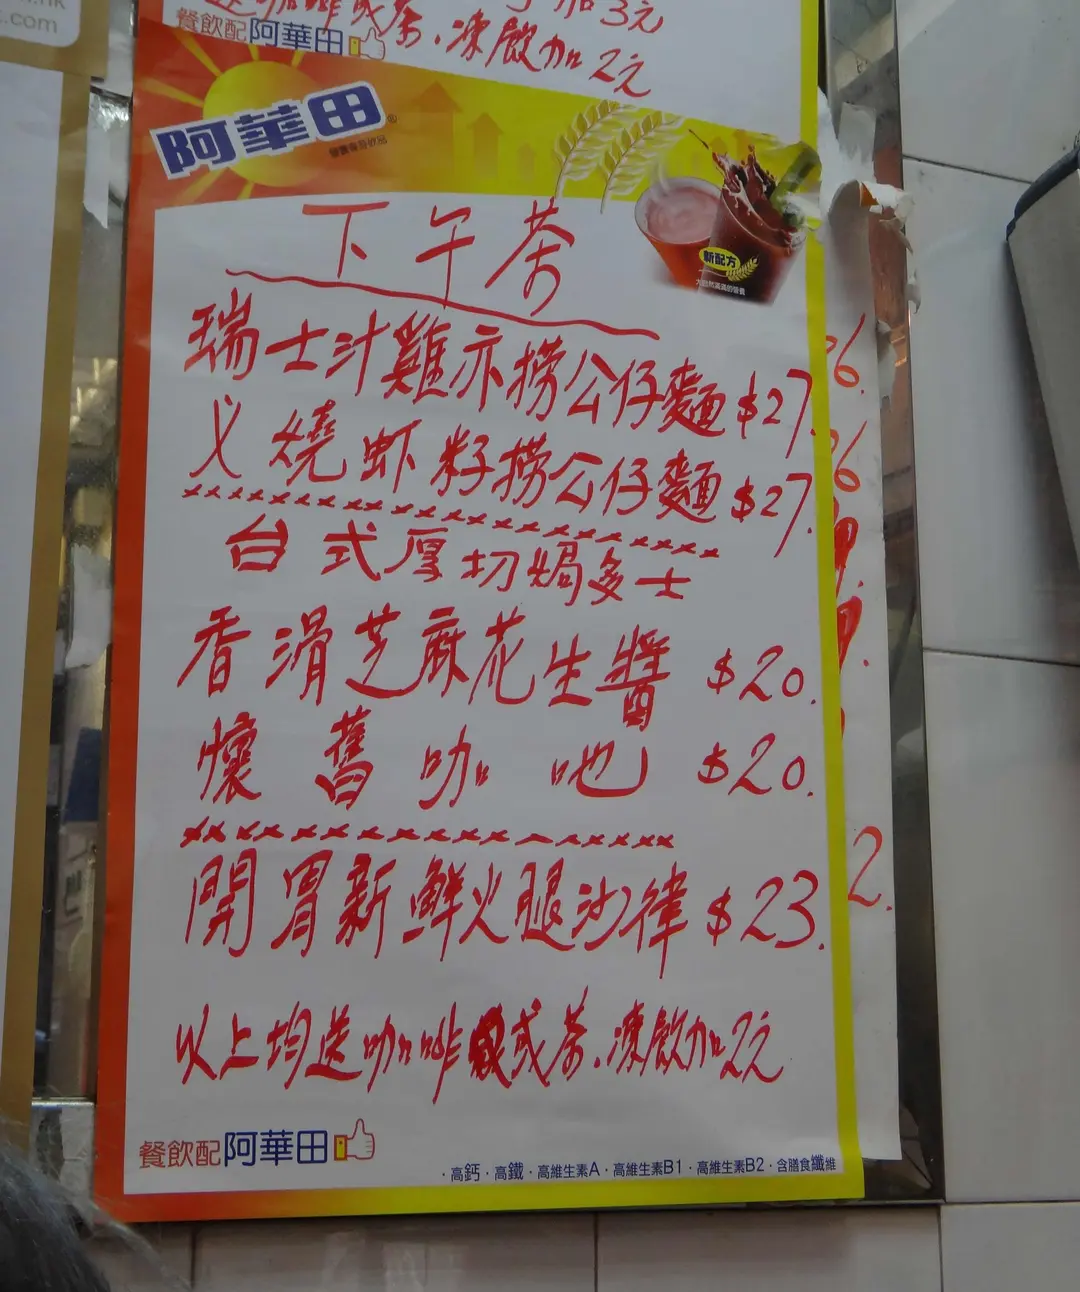 .hk
.com
加3元
餐飲配阿華田
或茶．凍飲加2元
阿華田®
營養麥芽飲品
新配方
下午茶
瑞士汁雞亦撈公仔麵 $27.
乂燒虾籽撈公仔麵 $27.
台式厚切焗多士
香滑芝麻花生醬 $20.
懷舊咖吔 $20.
開胃新鮮火腿沙律 $23.
以上均送咖啡或茶．凍飲加2元
餐飲配阿華田
·高鈣·高鐵·高維生素A·高維生素B1·高維生素B2·含膳食纖維